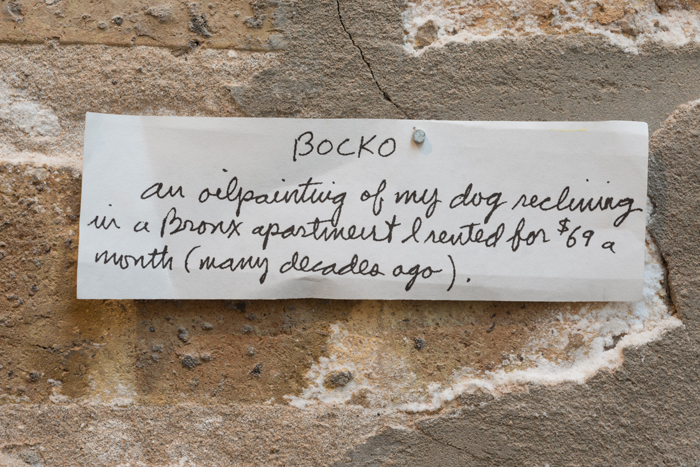 BOCKO
an oilpainting of my dog reclining
in a Bronx apartment I rented for $69 a
month (many decades ago).